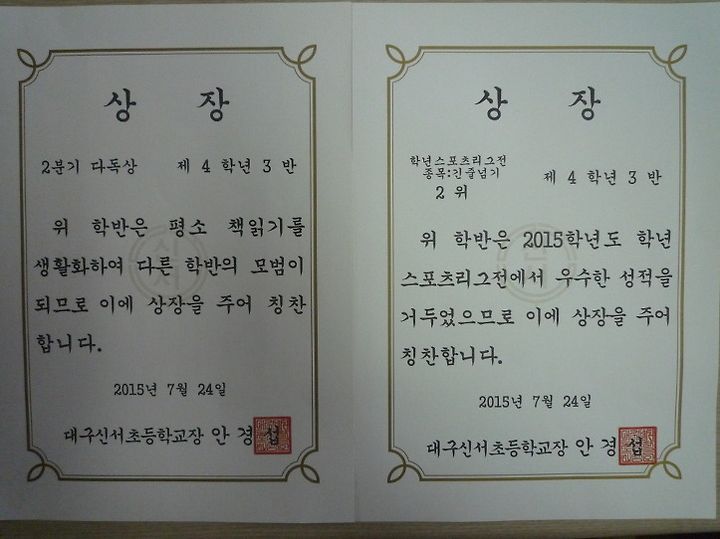 상 장
2분기 다독상 제 4 학년 3 반
위 학반은 평소 책읽기를
생활화하여 다른 학반의 모범이
되므로 이에 상장을 주어 칭찬
합니다.
2015년 7월 24일
대구신서초등학교장 안 경 섭
상 장
학년스포츠리그전
종목:긴줄넘기
2 위
제 4 학년 3 반
위 학반은 2015학년도 학년
스포츠리그전에서 우수한 성적을
거두었으므로 이에 상장을 주어
칭찬합니다.
2015년 7월 24일
대구신서초등학교장 안 경 섭